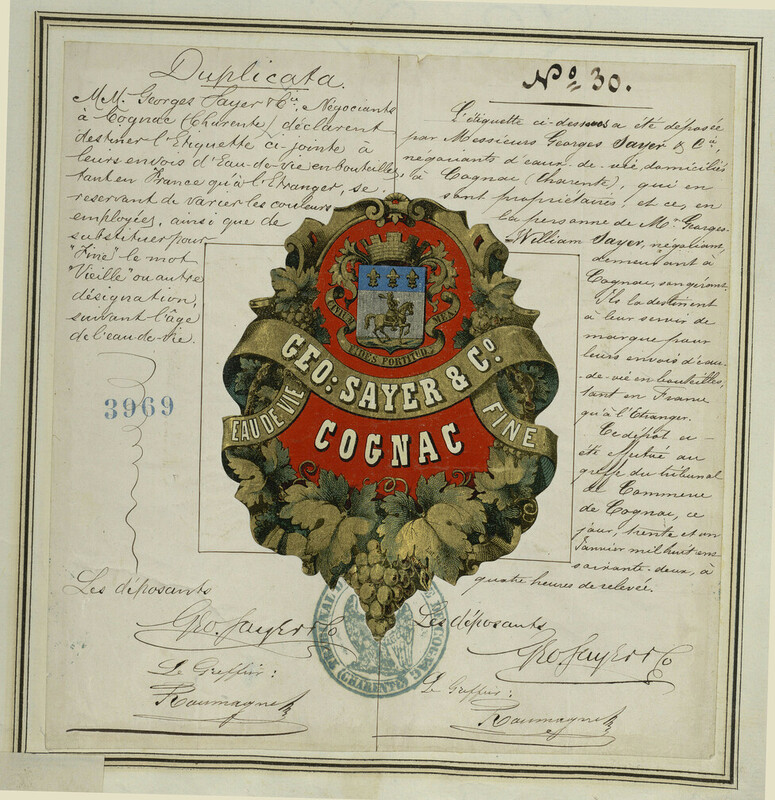 Duplicata.
MM. Georges Sayer & Cie, Négociants
à Cognac (Charente), déclarent
destiner l'Etiquette ci-jointe à
leurs envois d'Eau-de-vie en bouteilles,
tant en France qu'à l'Etranger, se
reservant de varier les couleurs
employées, ainsi que de
substituer pour
"Fine" le mot
"Vieille" ou autre
désignation,
suivant l'âge
de l'eau-de-vie.
3969
Les déposants
Geo. Sayer & Co
Le Greffier:
Roumagne
No 30.
L'étiquette ci-dessus a été déposée
par Messieurs Georges Sayer & Cie
négociants d'eaux-de-vie, domiciliés
à Cognac (Charente), qui en
sont propriétaires; et ce, en
la personne de Mr Georges-
William Sayer, négociant,
demeurant à
Cognac, soussigné.
Ils la destinent
à leur servir de
marque pour
leurs envois d'eau-
de-vie en bouteilles,
tant en France
qu'à l'Etranger.
Ce dépôt a
été effectué au
greffe du tribunal
de Commerce
de Cognac, ce
jour, trente et un
Janvier mil huit cent
soixante-deux, à
quatre heures de relevée.
Les déposants
Geo Sayer & Co
Le Greffier:
Roumagne
CIVIUM
MEA
FIDES FORTITUDO
GEO: SAYER & Co.
EAU DE VIE
FINE
COGNAC
TRIBUNAL DE COGNAC
(CHARENTE)